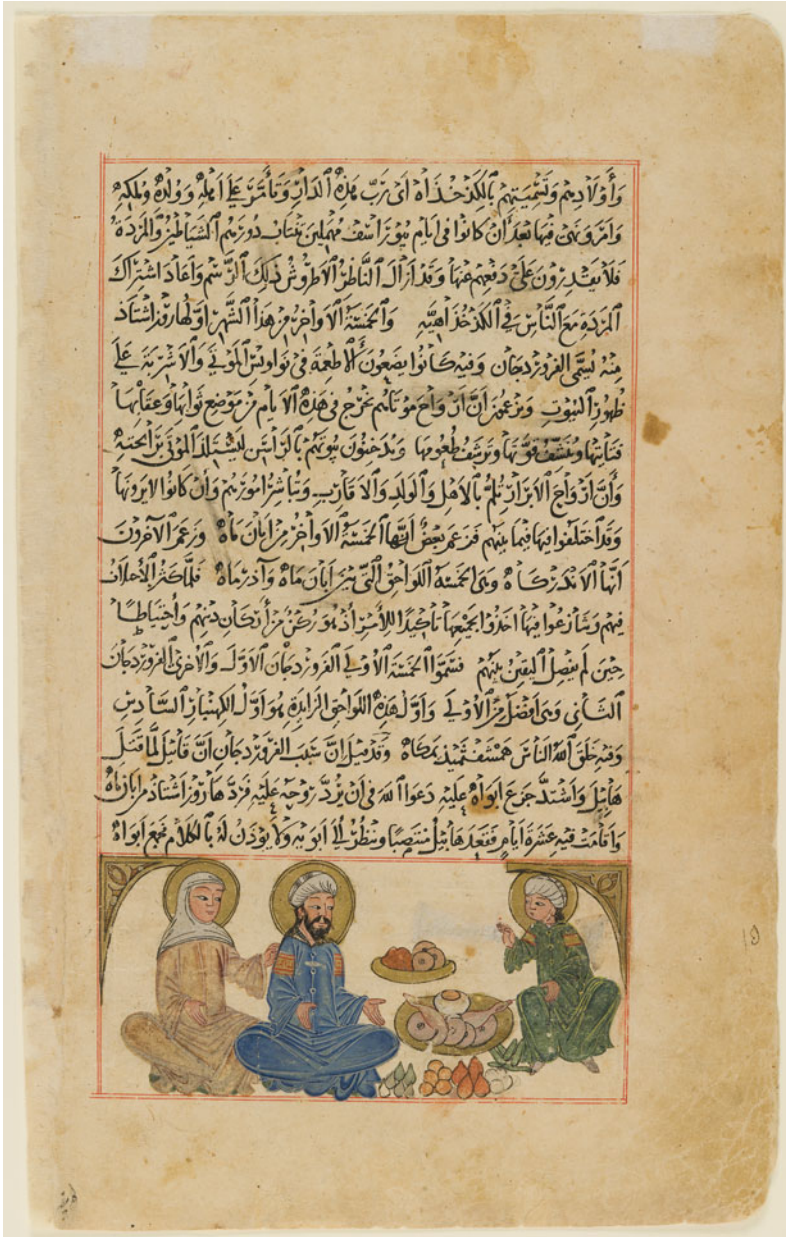 وَأَوْلَادِهِمْ وَتَسْمِيَتِهِمْ بِالْكَذْخُذَاهْ اَىْ رَبُّ هٰذِهِ الدَّارِ وَتَأَمَّرَ عَلَى اَهْلِهِ وَوُلْدِهِ وَمُلْكِهِ
وَاَمَرَ وَنَهَى فِيهَا بَعْدَ اَنْ كَانُوا فِى اَيَّامِ بِيُورَاسْف مُهْمَلِينَ يَنْتَابُ دُورَهُمْ الشَّيَاطِينُ وَالْمَرَدَةُ
فَلَا يَقْدِرُونَ عَلَى دَفْعِهِمْ عَنْهَا وَقَدْ اَزَالَ النَّاصِرُ الْاُطْرُوشُ ذٰلِكَ الرَّسْمَ وَاَعَادَ اشْتِرَاكَ
الْمَرَدَةِ مَعَ النَّاسِ فِى الْكَذْخُذَاهِيَّةِ وَالْخَمْسَةُ الْاَوَاخِرُ مِنْ هٰذَا الشَّهْرِ اَوَّلُهَا رُوزْ اَشْتَاذْ
مِنْهُ يُسَمَّى الفَرْوَرْدَجَان وَفِيهِ كَانُوا يَضَعُونَ الْاَطْعِمَةَ فِى نَوَاوِيسِ الْمَوْتَى وَالْاَشْرِبَةَ عَلَى
ظُهُورِ الْبُيُوتِ وَيَزْعُمُونَ اَنَّ اَرْوَاحَ مَوْتَاهُمْ تَخْرُجُ فِى هٰذِهِ الْاَيَّامِ مِنْ مَوْضِعِ ثَوَابِهَا وَعِقَابِهَا
فَتَأْتِيهَا وَتُنَشِّفُ قُوَّتَهَا وَتَرْشِفُ طُعُومَهَا وَيُدَخِّنُونَ بُيُوتَهُمْ بِالرَّاسَنِ لِيَسْتَلِذَّ الْمَوْتَى بِرَائِحَتِهِ
وَاَنَّ اَرْوَاحَ الْاَبْرَارِ تُلِمُّ بِالْاَهْلِ وَالْوَلَدِ وَالْاَقَارِبِ وَتُبَاشِرُ اُمُورَهُمْ وَاِنْ كَانُوا لَا يَرَوْنَهَا
وَقَدْ اخْتَلَفُوا فِيهَا فِيمَا بَيْنَهُمْ فَزَعَمَ بَعْضٌ اَنَّهَا الْخَمْسَةُ الْاَوَاخِرُ مِنْ اَبَانْ مَاهْ وَزَعَمَ الْآخَرُونَ
اَنَّهَا الْاَنْدَرْكَاهْ وَهِىَ الْخَمْسَةُ اللَّوَاحِقُ الَّتِى بَيْنَ اَبَانْ مَاهْ وَآذَرْمَاهْ فَلَمَّا كَثُرَ الْاِخْلَافُ
فِيهِمْ وَتَنَازَعُوا فِيهَا اَخَذُوا بِجَمِيعِهَا تَأْكِيدًا لِلْاَمْرِ اِذْ هُوَ رُكْنٌ مِنْ اَرْكَانِ دِينِهِمْ وَاحْتِيَاطًا
حِينَ لَمْ يَفْصِلِ الْيَقِينُ بَيْنَهُمْ فَسَمَّوْا الْخَمْسَةَ الْاُولَى الفَرْوَرْدَجَان الْاَوَّلَ وَالْاُخْرَى الْفَرْوَرْدَجَان
الثَّانِى وَهِىَ اَفْضَلُ مِنَ الْاُولَى وَاَوَّلُ هٰذِهِ اللَّوَاحِقِ الزَّايِدَةِ هُوَ اَوَّلُ الكَهَنْبَارِ السَّادِسِ
وَفِيهِ خَلَقَ اللهُ النَّاسَ هَمَشْفَثْمِيذِيمْكَاهْ وَقَدْ قِيلَ اِنَّ سَبَبَ الفَرْوَرْدَجَان اَنَّ قَابِيلَ لَمَّا قَتَلَ
هَابِيلَ وَاشْتَدَّ جَزَعُ اَبَوَاهُ عَلَيْهِ دَعَوَا اللهَ فِى اَنْ يَرُدَّ رُوحَهُ عَلَيْهِ فَرَدَّهَا رُوزْ اَشْتَاذْ مِنْ اَبَانْ مَاهْ
وَاَقَامَتْ فِيهِ عَشَرَةَ اَيَّامٍ فَقَعَدَ هَابِيلُ مُنْتَصِبًا وَيَنْظُرُ اِلَى اَبَوَيْهِ وَلَا يُؤْذَنُ لَهُ بِالْكَلَامِ فَجَمَعَ اَبَوَاهُ